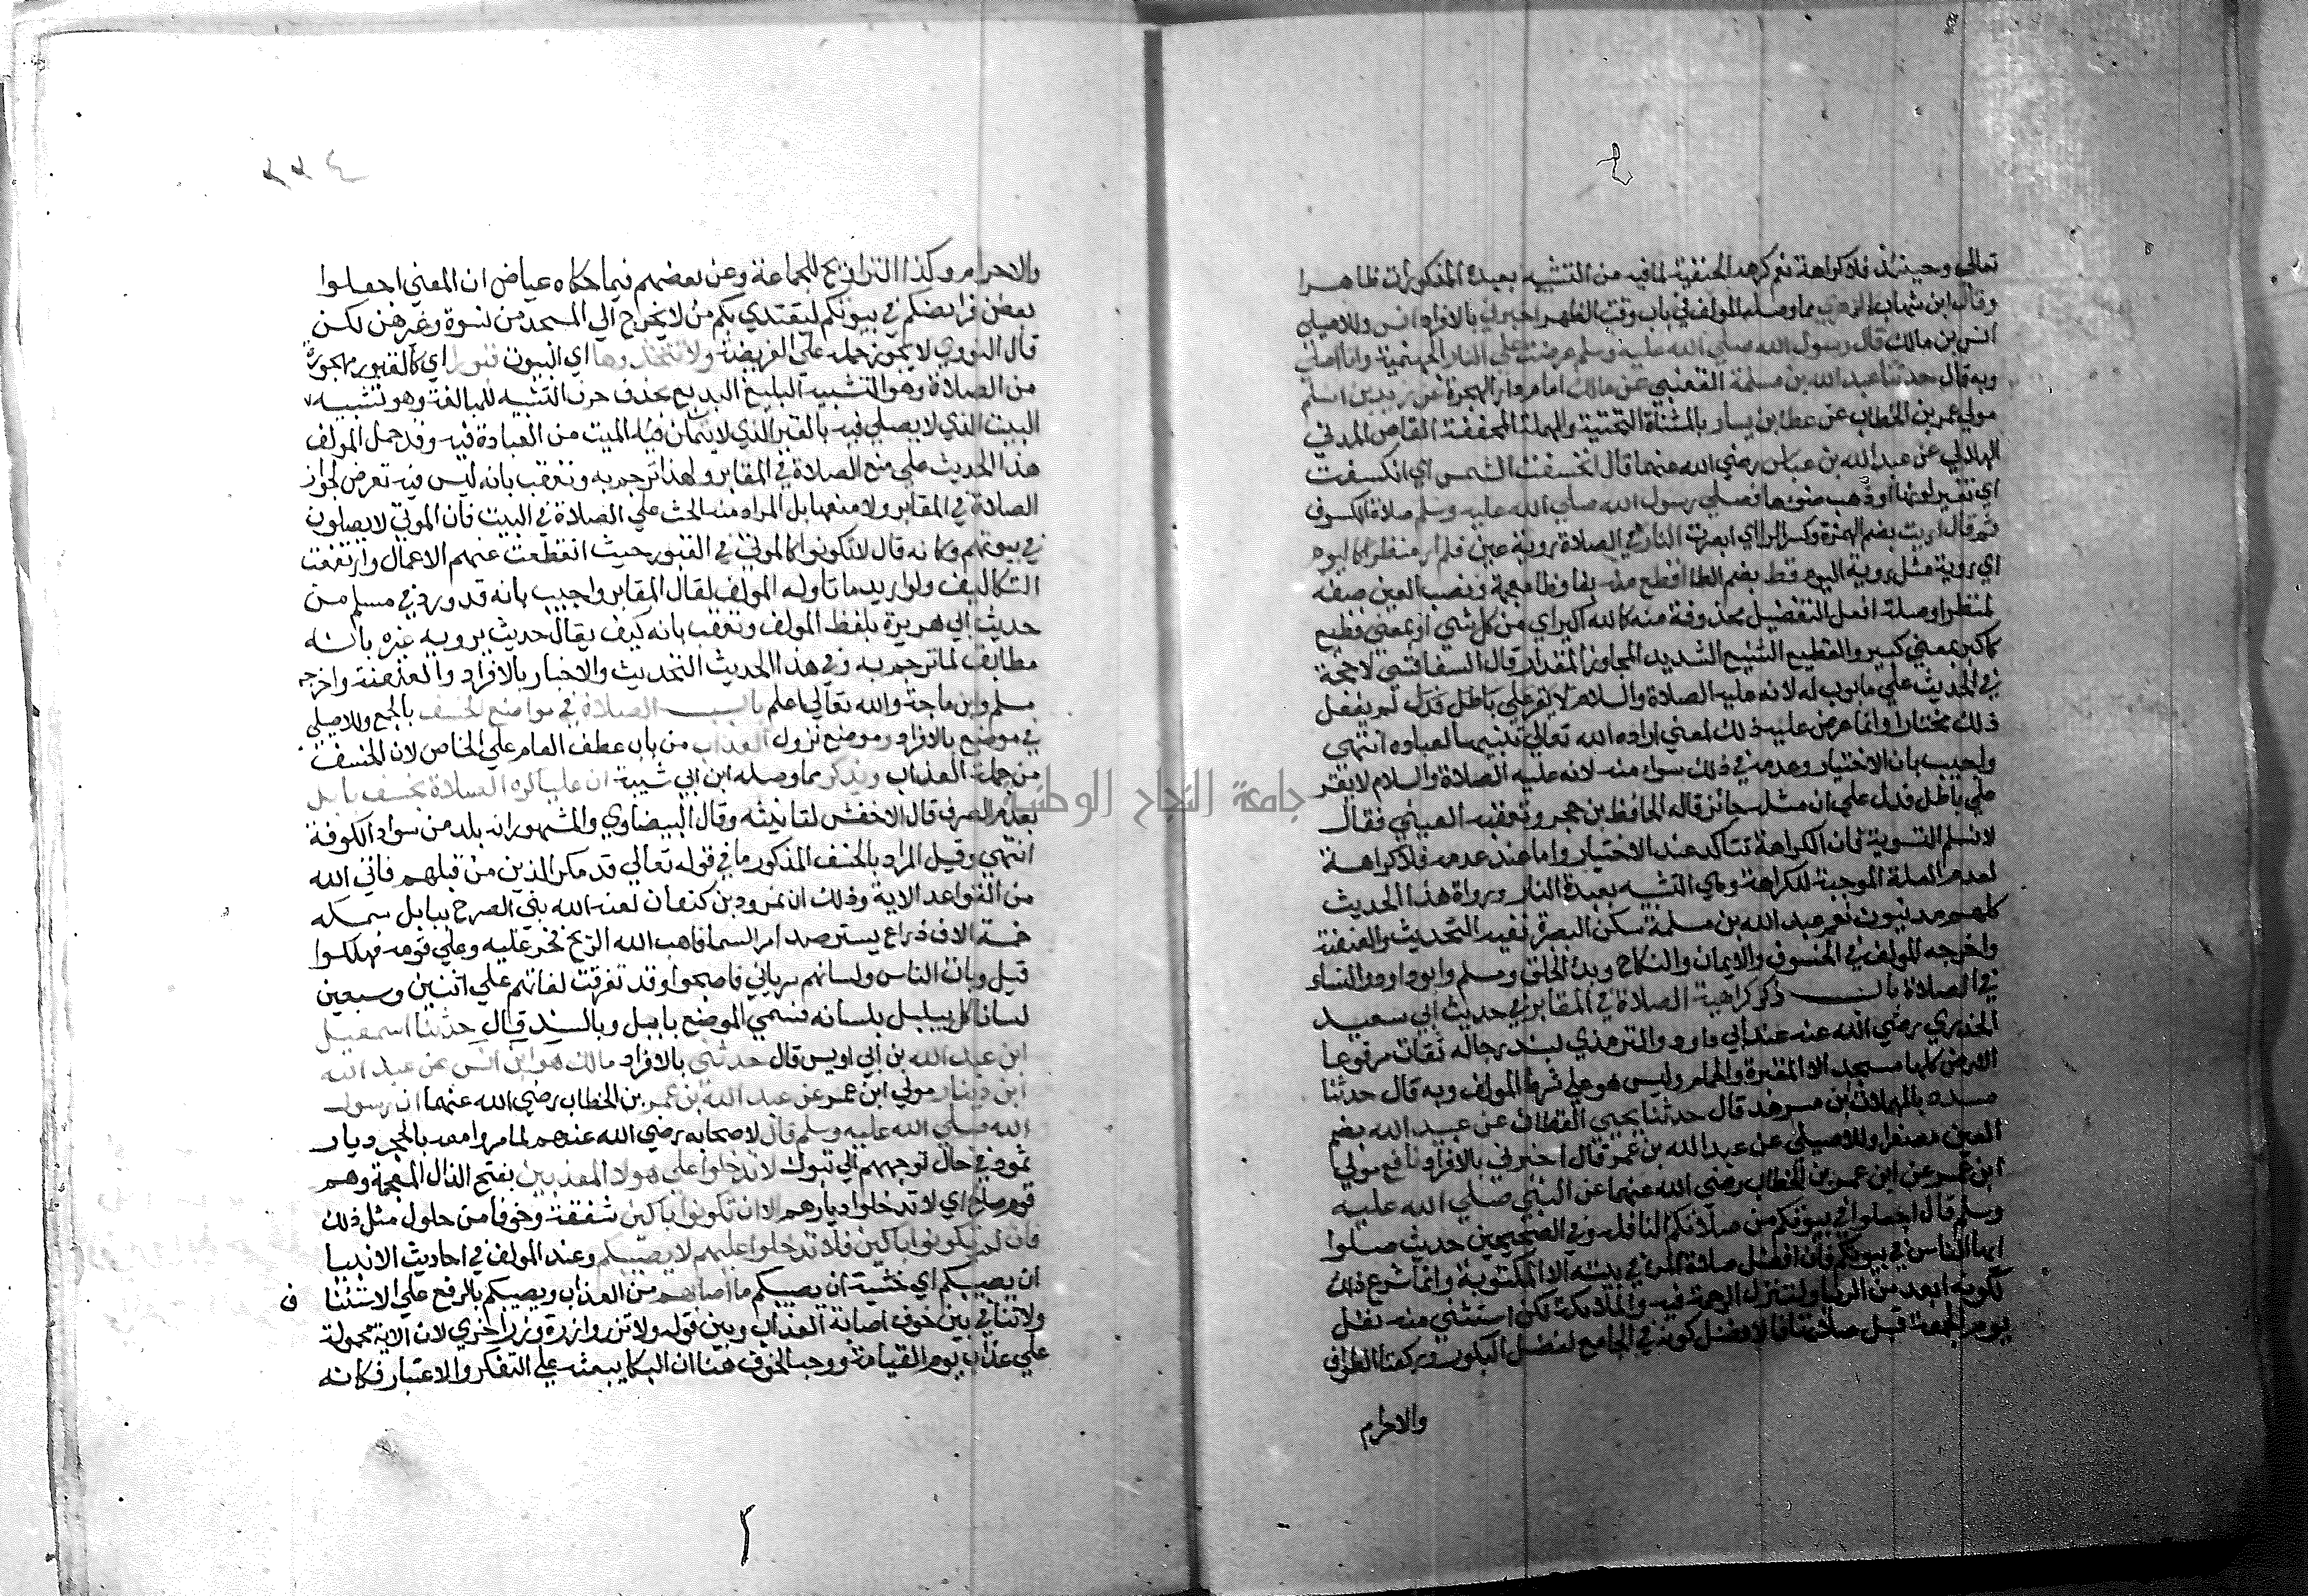 تعالى وحينئذ فلا كراهة نعم كرهه الحنفية لما فيه من التشبيه بعبدة المذكورات ظاهرا
وقال ابن شهاب الزهري مما وصله المولف في باب وقت الظهر اخبرني بالافراد انس وللاصيلي
انس بن مالك قال رسول الله صلي الله عليه وسلم عرضت علي النار الجهنمية وانا اصلي
وبه قال حدثنا عبد الله بن مسلمة القعنبي عن مالك امام دار الهجرة عن زيد بن اسلم
مولي عمر بن الخطاب عن عطا بن يسار بالمثناة التحتية والمهملة المخففة القاص المدني
الهلالي عن عبد الله بن عباس رضي الله عنهما قال انخسفت الشمس اي انكسفت
اي تغير لونها او ذهب ضوءها فصلي رسول الله صلي الله عليه وسلم صلاة الكسوف
ثم قال اريت بضم الهمزة وكسر الرا اي ابصرت النار في الصلاة روية عين فلم ار منظرا كاليوم
اي روية مثل روية اليوم قط بضم الطا افظع منه بفا وظا معجمة ونصب العين صفة
لمنظرا وصلة افعل التفضيل محذوفة منه كالله اكبر اي من كل شي او بمعني فظيع
كاكبر بمعني كبير والفظيع الشنيع الشديد المجاوز المقدار قال السفاقسي لا حجة
في الحديث علي ما بوب له لانه عليه الصلاة والسلام لا يقر علي باطل فدل لم يفعل
ذلك مختارا وانما عرض عليه ذلك لمعني اراده الله تعالي تنبيها لعباده انتهي
واجيب بان الاختيار وعدمه في ذلك سواء منه لانه عليه الصلاة والسلام لا يقر
علي باطل فدل علي ان مثله جائز قاله الحافظ بن حجر وتعقبه العيني فقال
لا نسلم التسوية فان الكراهة تتاكد عند الاختيار واما عند عدمه فلا كراهة
لعدم العلة الموجبة للكراهة وهي التشبه بعبدة النار ورواة هذا الحديث
كلهم مدنيون نعم عبد الله بن مسلمة سكن البصرة وفيه التحديث والعنعنة
واخرجه المولف في الخسوف والايمان والنكاح وبدء الخلق ومسلم وابو داود والنساء
في الصلاة باب ذكر كراهية الصلاة في المقابر في حديث ابي سعيد
الخدري رضي الله عنه عند ابي داود والترمذي بسند رجاله ثقات مرفوعا
الارض كلها مسجد الا المقبرة والحمام وليس هو علي شرط المولف وبه قال حدثنا
مسدد بالمهملات بن مسرهد قال حدثنا يحيي القطان عن عبيد الله بضم
العين مصغرا وللاصيلي عن عبد الله بن عمر قال اخبرني بالافراد نافع مولي
ابن عمر عن ابن عمر بن الخطاب رضي الله عنهما عن النبي صلي الله عليه
وسلم قال اجعلوا في بيوتكم من صلاتكم النافلة وفي الصحيحين حديث صلوا
ايها الناس في بيوتكم فان افضل صلاة المرء في بيته الا المكتوبة وانما شرع ذلك
لكونه ابعد من الريا ولتنزل الرحمة فيه والملائكة لكن استثني منه نفل
يوم الجمعة قبل صلاتها فالافضل كونه في الجامع لفضل البكور وركعتا الطواف
والاحرام
٢٢٤
والاحرام وكذا التراويح للجماعة وعن بعضهم فيما حكاه عياض ان المعني اجعلوا
بعض فرايضكم في بيوتكم ليقتدي بكم من لا يخرج الي المسجد من نسوة وغيرهن لكن
قال النووي لا يجوز حمله علي الفريضة ولا تتخذوها اي البيوت قبورا اي كالقبور مهجورة
من الصلاة وهو التشبيه البليغ البديع بحذف حرف التشبيه للمبالغة وهو تشبيه
البيت الذي لا يصلي فيه بالقبر الذي لا يتمكن فيه الميت من العبادة فيه وقد حمل المولف
هذا الحديث علي منع الصلاة في المقابر ولهذا ترجم به وتعقب بانه ليس فيه تعرض لجواز
الصلاة في المقابر ولا منعها بل المراد منه الحث علي الصلاة في البيت فان الموتي لا يصلون
في بيوتهم وكانه قال لا تكونوا كالموتي في القبور حيث انقطعت عنهم الاعمال وارتفعت
التكاليف ولو اريد ما تاوله المولف لقال المقابر واجيب بانه قد ورد في مسلم من
حديث ابي هريرة بلفظ المولف وتعقب بانه كيف يقال حديث يرويه غيره بانه
مطابق لما ترجم به وفي هذا الحديث التحديث والاخبار بالافراد والعنعنة واخرجه
مسلم وابن ماجة والله تعالي اعلم باب الصلاة في مواضع الخسف بالجمع وللاصيلي
في موضع بالافراد وموضع نزول العذاب من باب عطف العام علي الخاص لان الخسف
من جملة العذاب ويذكر مما وصله ابن ابي شيبة ان عليا كره الصلاة بخسف بابل
بعدم الصرف قال الاخفش لتانيثه وقال البيضاوي والمشهور انه بلد من سواد الكوفة
انتهي وقيل المراد بالخسف المذكور ما في قوله تعالي قد مكر الذين من قبلهم فاتي الله
من القواعد الاية وذلك ان نمرود بن كنعان لعنه الله بني الصرح ببابل سمكه
خمسة الاف ذراع يسترصد امر السما فاهب الله الريح فخر عليه وعلي قومه فهلكوا
قيل وبات الناس ولسانهم سرياني فاصبحوا وقد تفرقت لغاتهم علي اثنين وسبعين
لسانا كل يبلبل بلسانه فسمي الموضع بابل وبالسند قال حدثنا اسمعيل
ابن عبد الله بن ابي اويس قال حدثني بالافراد مالك هو ابن انس عن عبد الله
ابن دينار مولي ابن عمر عن عبد الله بن عمر بن الخطاب رضي الله عنهما ان رسول
الله صلي الله عليه وسلم قال لاصحابه رضي الله عنهم لما مروا معه بالحجر ديار
ثمود في حال توجههم الي تبوك لا تدخلوا علي هولاء المعذبين بفتح الذال المعجمة وهم
قوم صالح اي لا تدخلوا ديارهم الا ان تكونوا باكين شفقة وخوفا من حلول مثل ذلك
فان لم تكونوا باكين فلا تدخلوا عليهم لا يصيبكم وعند المولف في احاديث الانبيا
ان يصيبكم اي خشية ان يصيبكم ما اصابهم من العذاب ويصيبكم بالرفع علي الاستئنا ف
ولا تنافي بين خوف اصابة العذاب وبين قوله ولا تزر وازرة وزر اخري لان الاية محمولة
علي عذاب يوم القيامة ووجه الخوف هنا ان البكا يبعثه علي التفكر والاعتبار فكانه
جامعة النجاح الوطنية